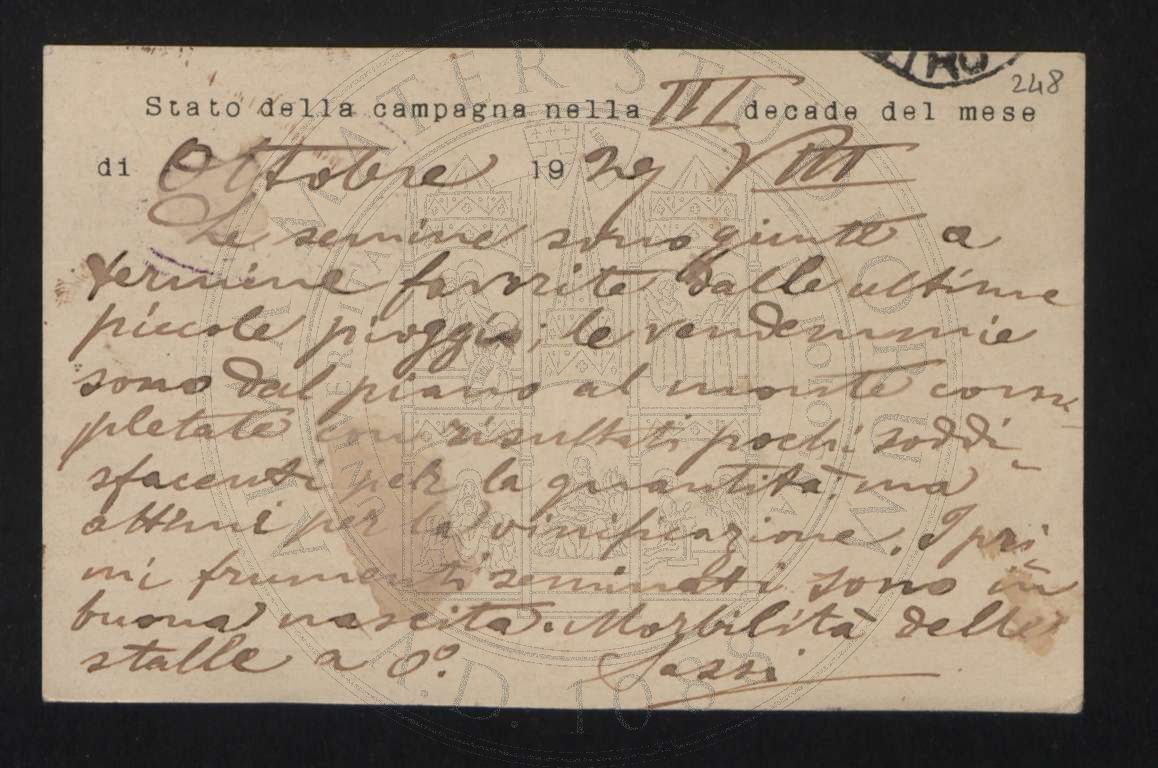 248
Stato della campagna nella III decade del mese
di Ottobre 1929 VIII
Le semine sono giunte a
termine favorite dalle ultime
piccole pioggie; le vendemmie
sono dal piano al monte com-
pletate con risultati pochi soddi-
sfacenti per la quantità, ma
ottimi per la vinificazione. I pri-
mi frumenti seminati sono in
buona nascita. Morbilità delle
stalle a 0°.
Sassi